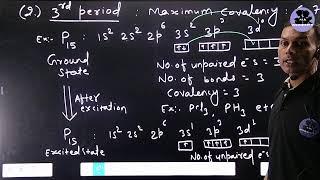 (2.) 3rd period : Maximum Covalency : 7
Ex:- P15 : 1s² 2s² 2p⁶ 3s² 3p³ 3d⁰
Ground State
↑↓ ↑ ↑ ↑
No. of unpaired e⁻s = 3
No. of bonds = 3
Covalency = 3
After excitation
Ex:- PCl3, PH3 etc
P15 : 1s² 2s² 2p⁶ 3s¹ 3p³ 3d¹
Excited state
↑ ↑ ↑ ↑
No. of unpaired e⁻s =